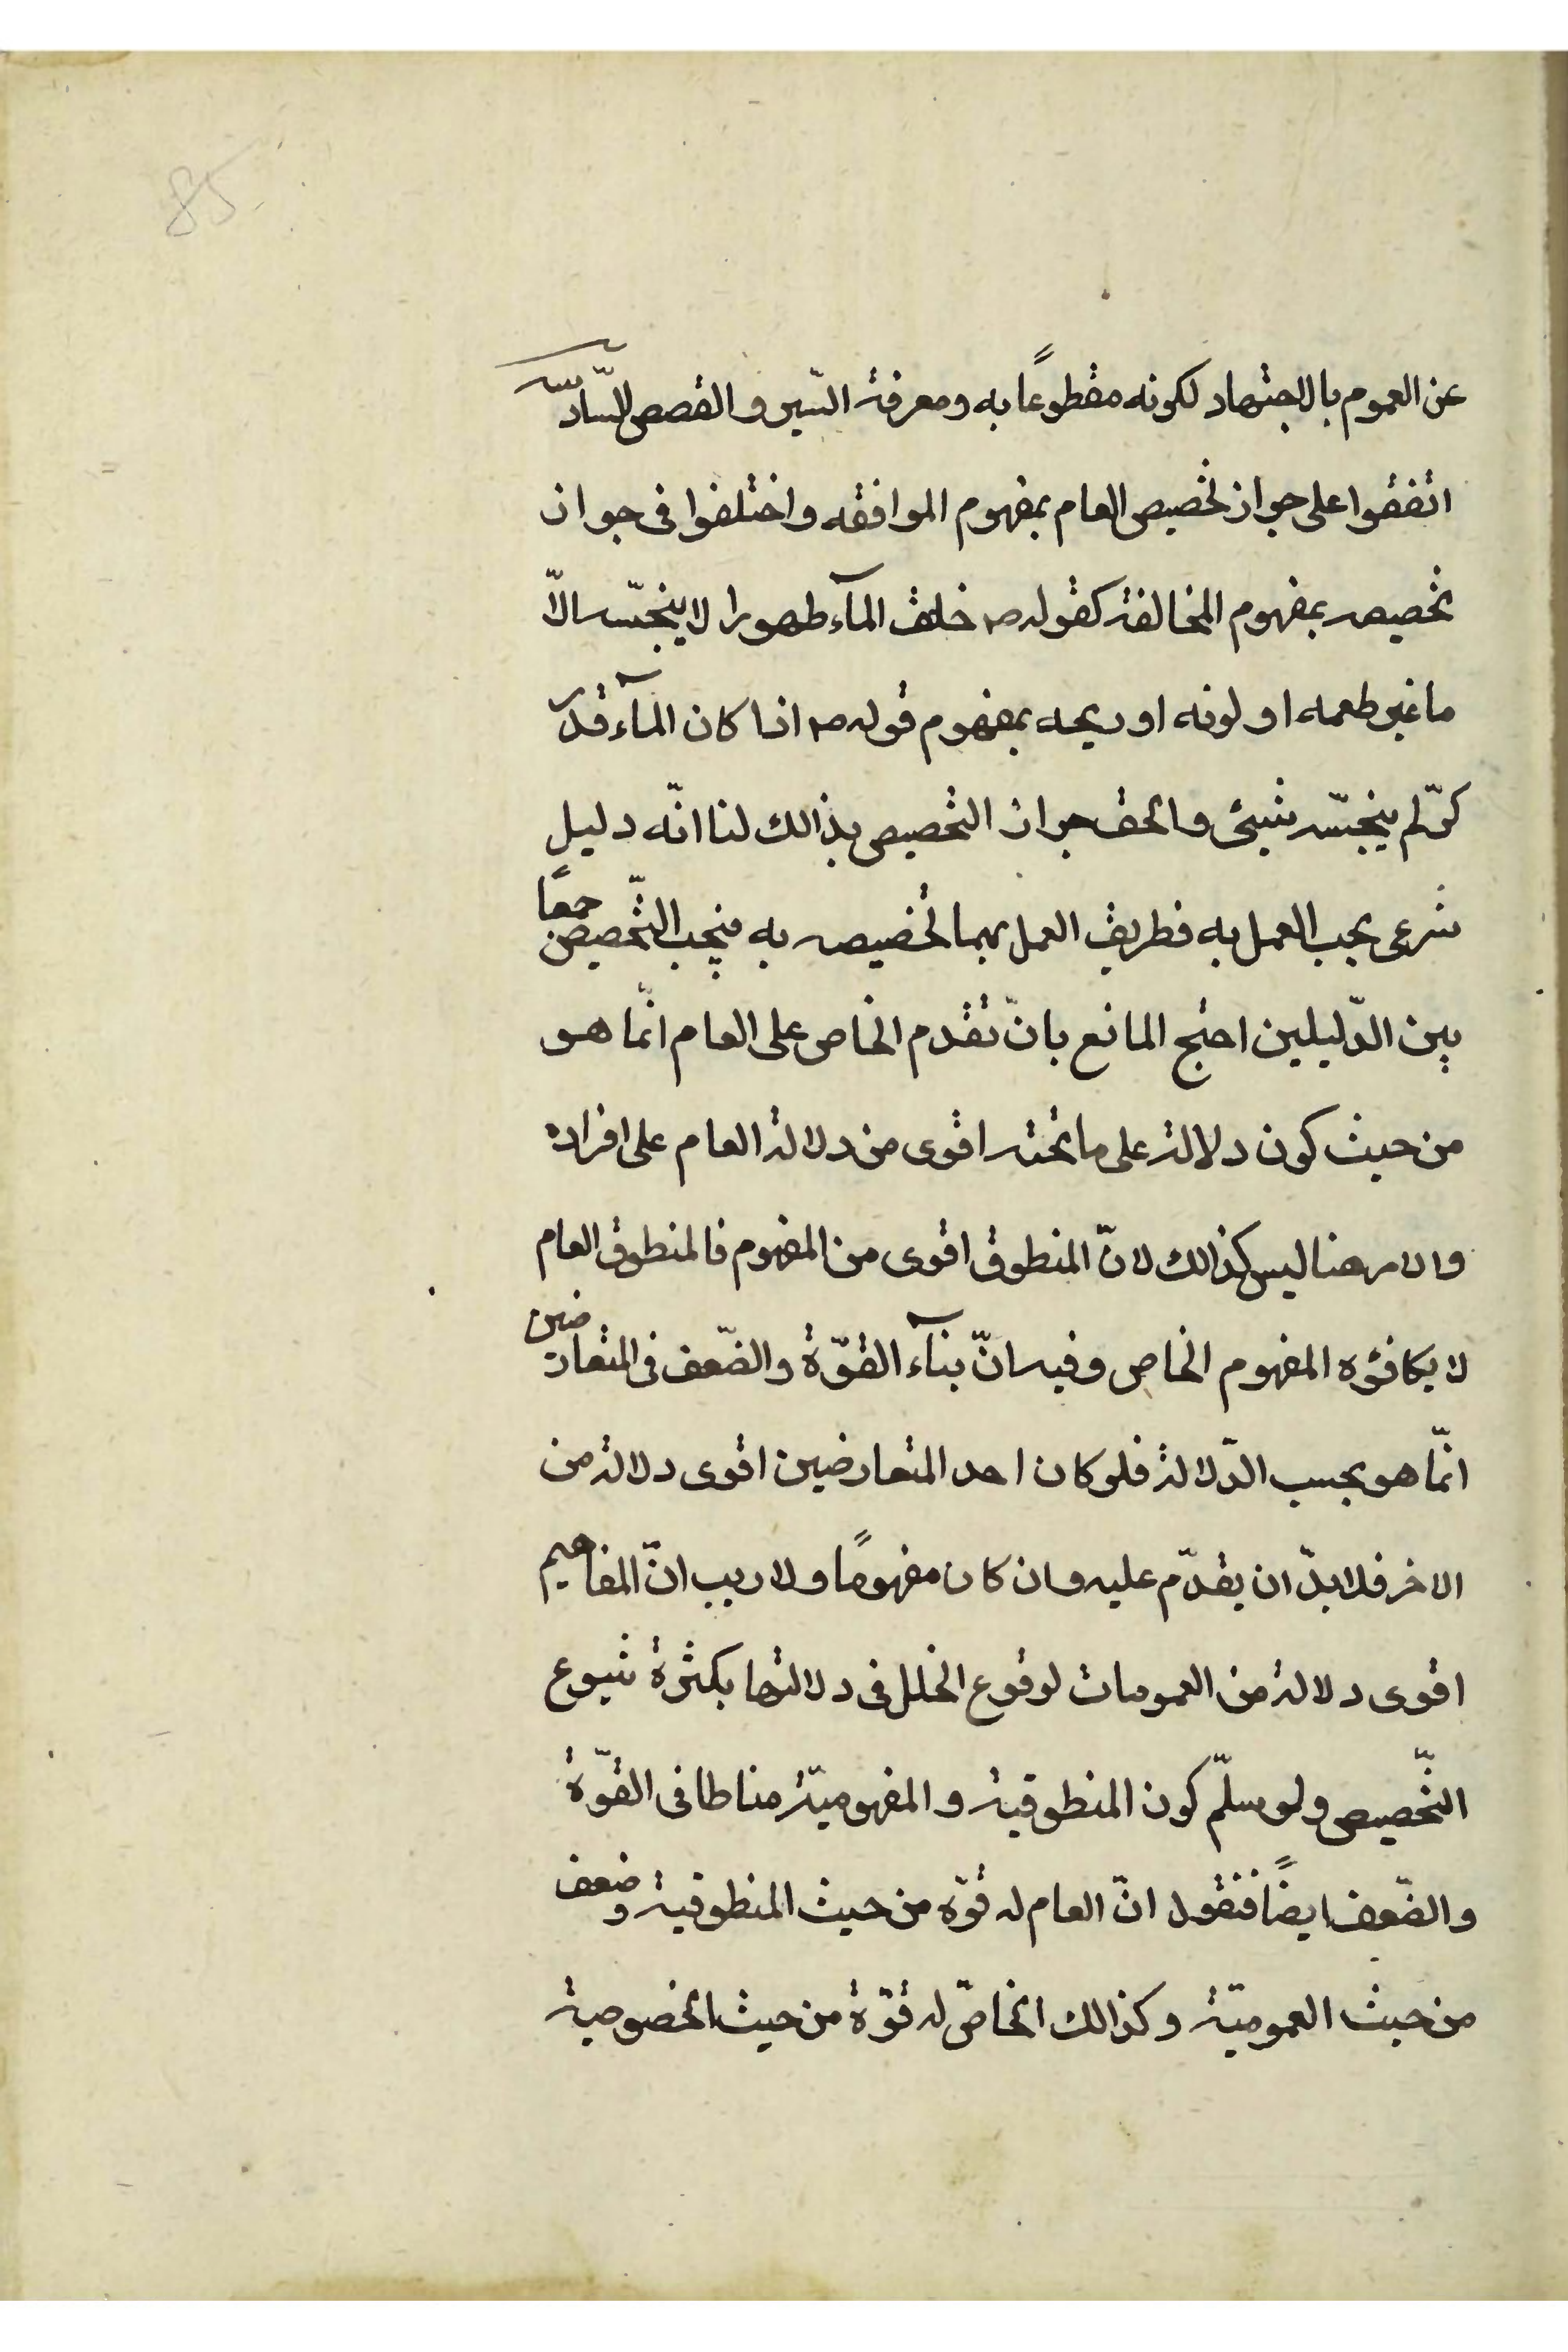 85
عن العموم بالاجتهاد لكونه مقطوعًا به ومعرفة السّير والقصص السّادسة
اتفقوا على جواز تخصيص العام بمفهوم الموافقه واختلفوا فى جواز
تخصيصه بمفهوم المخالفة كقوله ص خلق المآء طهورا لا ينجّسه الّا
ما غير طعمه او لونه او ريحه بمفهوم قوله ص اذا كان المآء قدر
كرّ لم ينجّسه شيئ والحق جواز التخصيص بذالك لنا انّه دليل
شرعى يجب العمل به فطريق العمل بهما تخصيصه به فيجب التّخصيص جمعًا
بين الدّليلين احتج المانع بانّ تقدم الخاص على العام انّما هو
من حيث كون دلالته على ما تحته اقوى من دلالة العام على افراده
والامر هنا ليس كذالك لانّ المنطوق اقوى من المفهوم فالمنطوق العام
لا يكافؤه المفهوم الخاص وفيه انّ بنآء القوّة والضّعف فى المتعارضين
انّما هو بحسب الدّلالة فلو كان احد المتعارضين اقوى دلالة من
الاخر فلا بدّ ان يقدّم عليه وان كان مفهومًا ولا ريب انّ المفاهيم
اقوى دلالة من العمومات لوقوع الخلل فى دلالتها بكثرة شيوع
التّخصيص ولو سلّم كون المنطوقية والمفهوميّة مناطا فى القوّة
والضّعف ايضًا فنقول انّ العام له قوّه من حيث المنطوقية وضعف
من حيث العموميّة وكذالك الخاصّ له قوّة من حيث الخصوصية